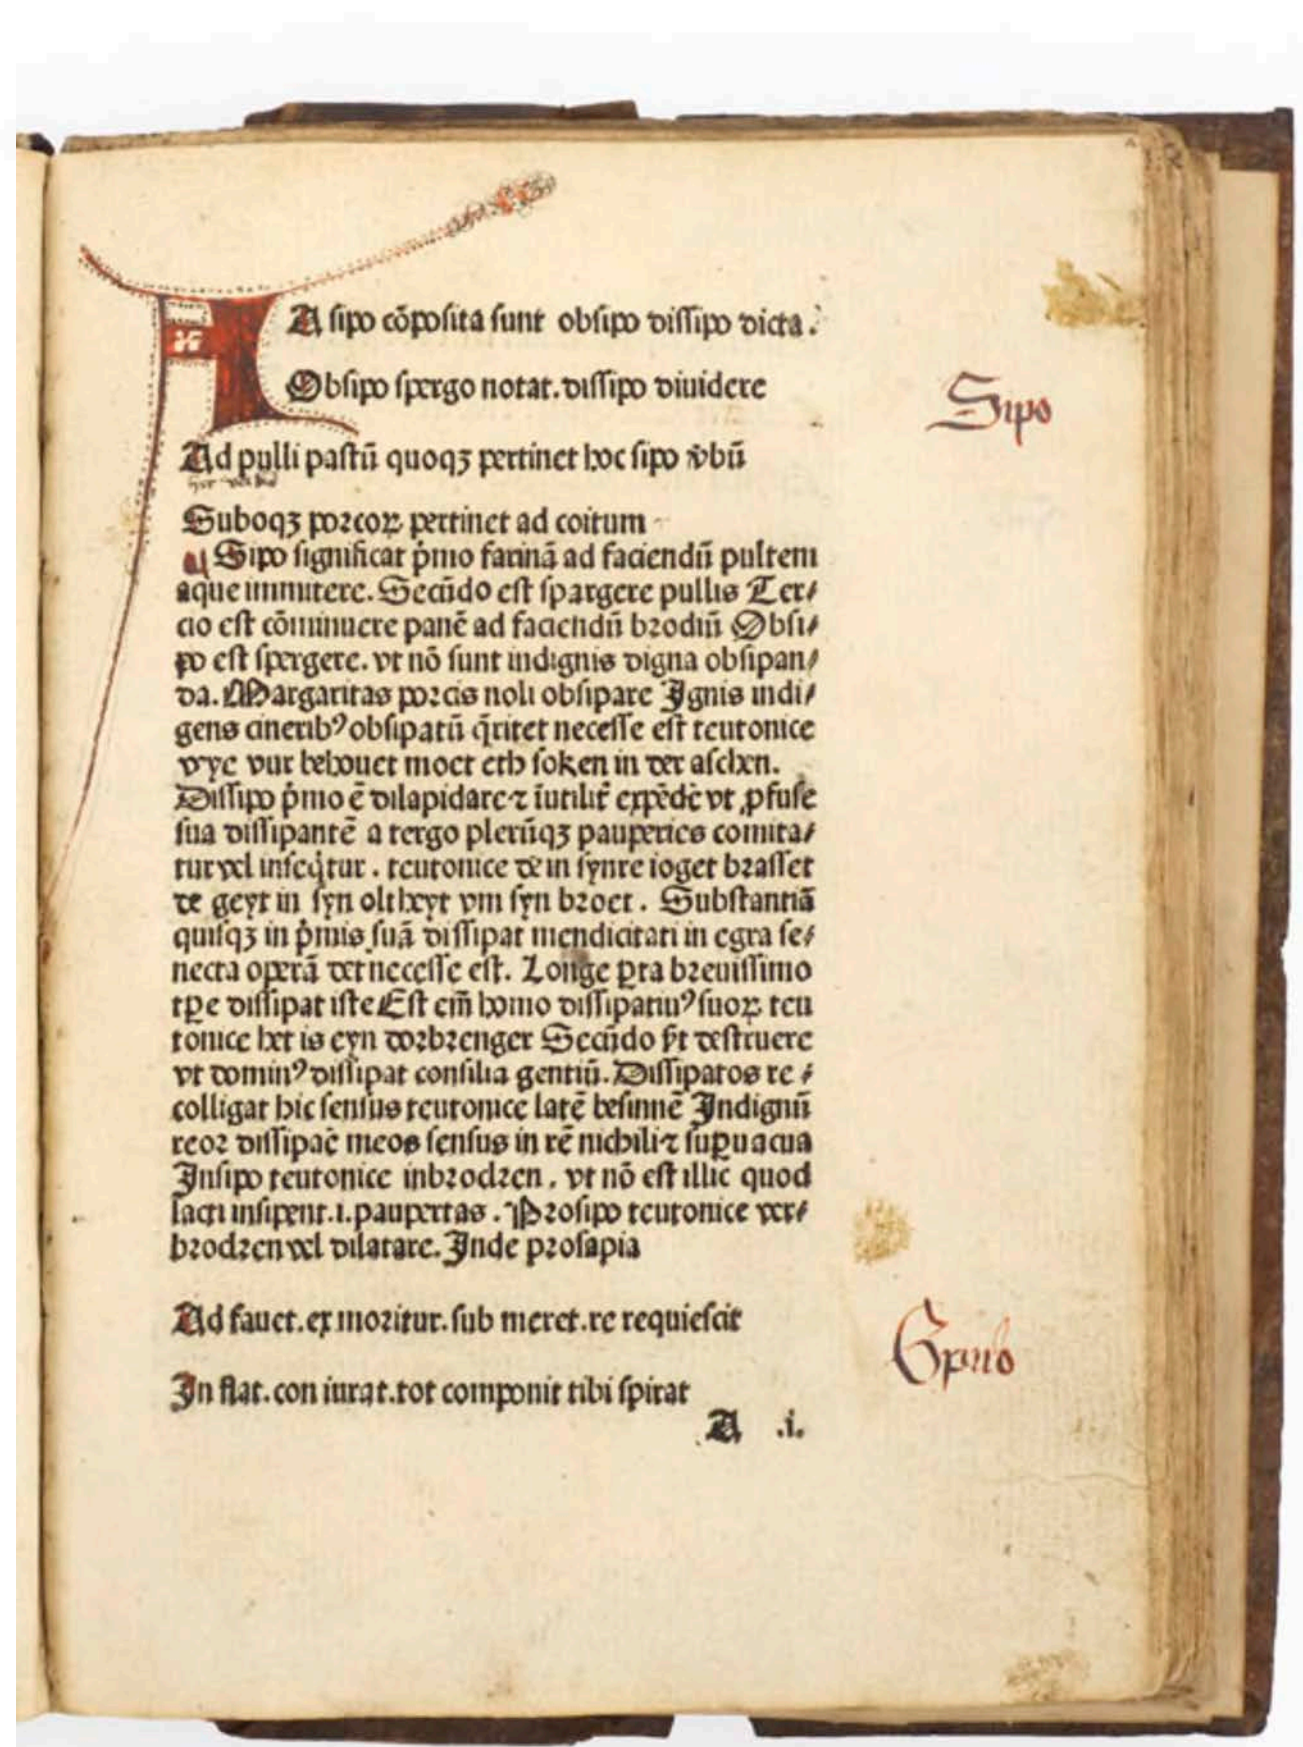 A sipo cōposita sunt obsipo dissipo dicta.
Obsipo spergo notat. dissipo diuidere
Sipo
Ad pulli pastū quoqꝫ pertinet hoc sipo v̄bū
Suboqꝫ porcoꝝ pertinet ad coitum
Sipo significat p̄mo farinā ad faciendū pultem
aque immitere. Secūdo est spargere pullis Ter⸗
cio est cōminuere panē ad faciendū brodiū Obsi⸗
po est spergere. vt nō sunt indignis digna obsipan⸗
da. Margaritas porcis noli obsipare Ignis indi⸗
gens cineribꝰ obsipatū q̄ritet necesse est teutonice
wye vur behouet moet eth soken in der aschen.
Dissipo p̄mo ē dilapidare ⁊ īutilit̄ expēdē vt ꝓfuse
sua dissipantē a tergo plerūqꝫ pauperies comita⸗
tur vel inseq̄tur. teutonice de in synre ioget brasset
de geyt in syn oltheyt vm syn broet. Substantiā
quisqꝫ in p̄mis suā dissipat mendicitati in egra se⸗
necta operā det necesse est. Longe ꝑta breuissimo
tꝑe dissipat iste Est em̄ homo dissipatiuꝰ suoꝝ teu
tonice het is eyn dorbrenger Secūdo s̄t destruere
vt dominꝰ dissipat consilia gentiū. Dissipatos re⸗
colligat hic sensus teutonice latē besinnē Indignū
reor dissipaē meos sensus in rē nichili ⁊ suꝑuacua
Insipo teutonice inbrodzen. vt nō est illic quod
lacti insipent .i. paupertas. Prosipo teutonice ver⸗
brodzen vel dilatare. Inde prosapia
Ad fauet. ex moritur. sub meret. re requiescit
Spiro
In flat. con iurat. tot componit tibi spirat
A .i.